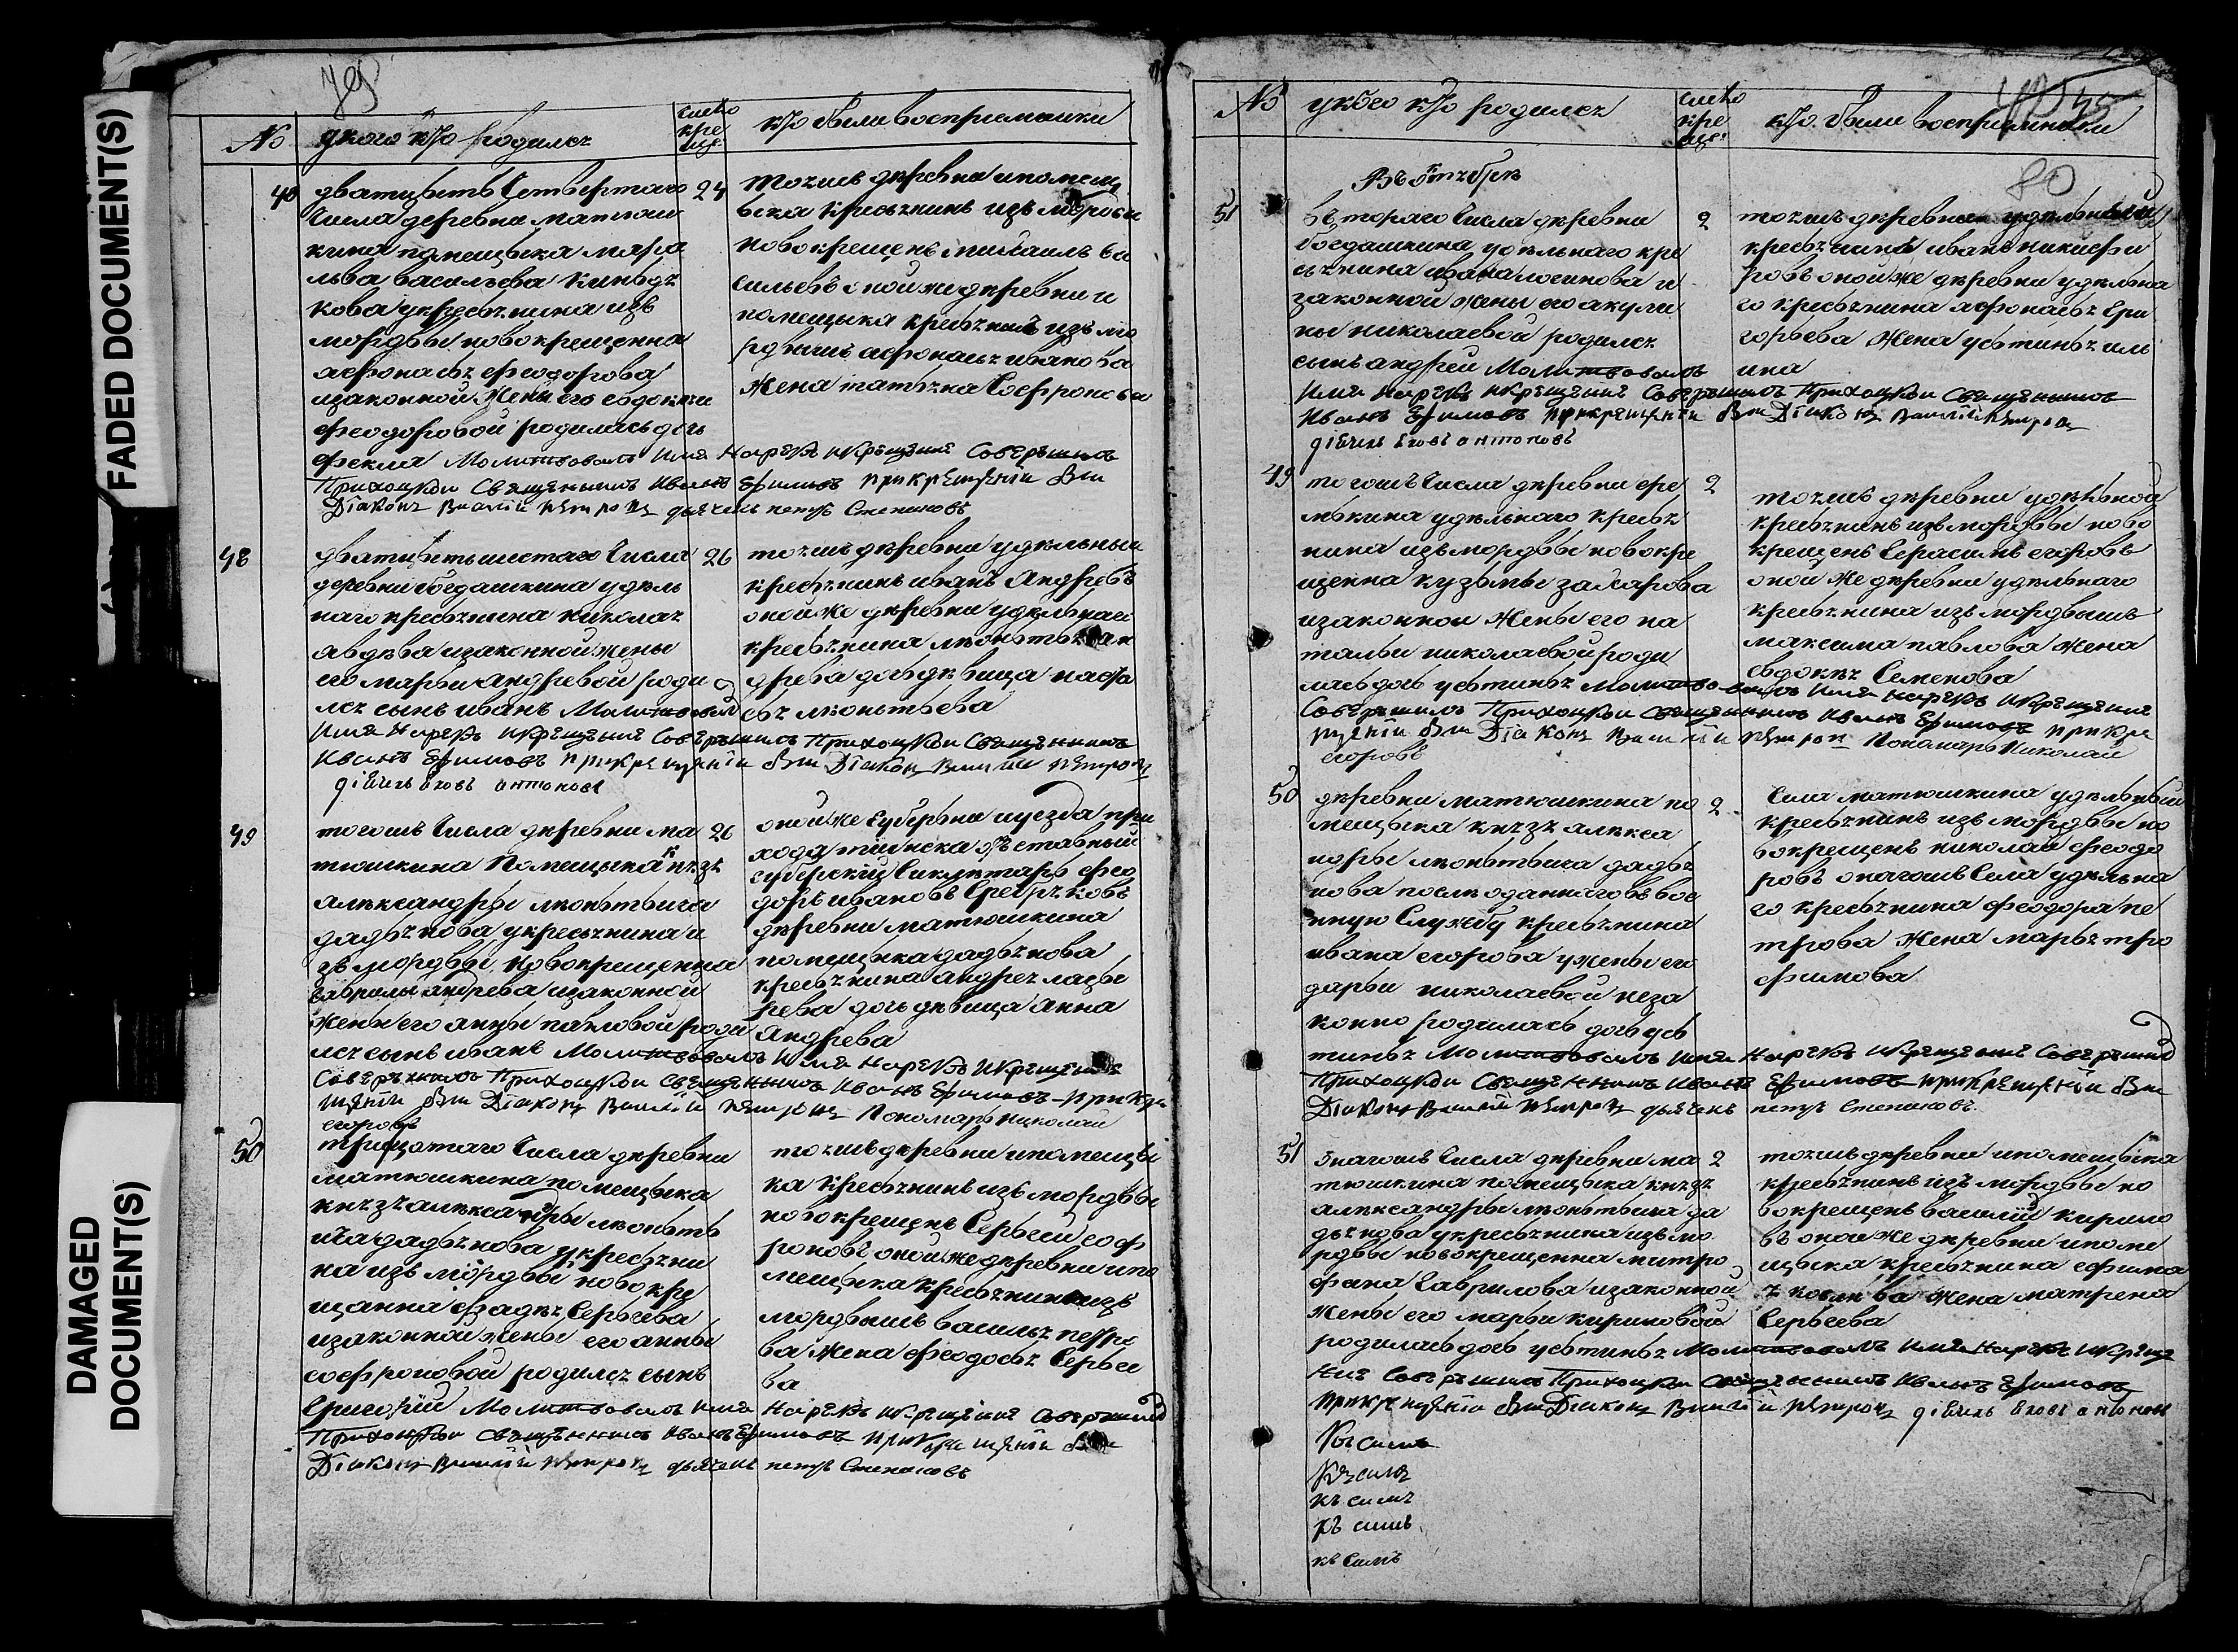 FADED DOCUMENT(S)
DAMAGED
DOCUMENT(S)
79
№ укого кто родилсѧ
число
кре
ще:
кто были восприемники
40 дватцѣть четвертаго 24
числа деревни матюш
кина помещика
льва васильева
кова укресьѧнина изъ
мордвы новокрещенна
афонасьѧ феодорова
изаконной жены его евдокѣи
феодоровой родилась дочь
фекла Молитвовалъ имя Нарѣкъ икрещение Совершилъ
Приходцкои Священникъ Иванъ Ефимовъ прикрещении был
Дiаконъ Василiй Петровъ дьячекъ петръ Степановъ
тоѧжъ деревни ипомещ
ика кресьѧнинъ изъ мордвы
новокрещенъ михаилъ ва
сильевъ оной же деревни и
помещика кресьѧнина изъ мо
рдвишъ афонасьѧ иванова
жена татьѧна Софронова
48 дватцѣть шестаго числа 26
деревни богдашкина удѣль
наго кресьѧнина николаѧ
авдѣва изаконной жены
его марьи андревой роди
лсѧ сынъ иванъ Молитвовалъ
Имя Нарекъ икрещение Совершилъ Приходцкои Священникъ
Иванъ Ефимовъ прикрещении был Дiаконъ Василiй Петровъ
дiячекъ Яковъ антоновъ
тоѧжъ деревни удѣльный
кресьѧнинъ иванъ Андревъ
оной же деревни удѣльнаго
кресьѧнина лѣонтьѧ ан
древа дочь дѣвица настас
сьѧ лѣонтьева
49 тогожъ числа деревни ма 26
тюшкина Помещика кнѧзѧ
алѣксандры лѣонтьича
дадьѧнова укресьѧнина и
зъ мордвы новокрещенна
гаврилы андрева изаконной
жены его анны павловой роди
лсѧ сынъ иванъ Молитвовалъ Имя Нарекъ Икрещение
Совершилъ Приходцкои Священникъ Иванъ Ефимовъ прикре
щении был Дiаконъ Василiй Петровъ Пономарь Николай
егоровъ
оной же губернии иуезда при
хода отставный
губерский Сикѣтарь фео
доръ ивановъ
деревни матюшкина
помещика дадьѧнова
кресьѧнина андреѧ лазы
рева дочь дѣвица анна
Андрева
50 трицотаго числа деревни
матюшкина помещика
кнѧзѧ алѣксандры лѣонть
ича дадьѧнова укресьѧни
на изъ мордвы новокре
щанна фадѣѧ Сергѣева
изаконной жены его анны
софроновой родилсѧ сынъ
Григорий Молитвовалъ имя Нарекъ икрещение Совершилъ
Приходцкои Священникъ Иванъ Ефимовъ прикрещении был
Дiаконъ Василiй Петровъ дьячекъ петръ Степановъ
тоѧжъ деревни ипомещи
ка кресьѧнинъ изъ мордвы
новокрещенъ Сергѣй соф
роновъ оной же деревни ипо
мещика кресьѧнина изъ
мордвишъ васильѧ петро
ва жена феодосьѧ Сергѣе
ва
№ укого кто родилсѧ
число
кре
ще:
кто были восприемники
80
Въ октѧбрѣ
51 втораго числа деревни 2
богдашкина удѣльнаго кре
сьѧнина ивана логинова и
законной жены его акули
ны николаевой родилсѧ
сынъ андрей Молитвовалъ
Имя Нарекъ икрещение Совершилъ Приходцкои Священникъ
Иванъ Ефимовъ прикрещении был Дiаконъ Василiй Петровъ
дiячекъ Яковъ антоновъ
тоѧжъ деревни удѣльный
кресьѧнинъ иванъ никифо
ровъ оной же деревни удѣльна
го кресьѧнина афонасьѧ гри
горьева жена устиньѧ иль
ина
49 тогожъ числа деревни ере 2
мькина удѣльнаго кресьѧ
нина изъ мордвы новокре
щенна кузьмы захарова
изаконной жены его на
тальи николаевой роди
лась дочь устиньѧ Молитвовалъ Имя Нарекъ икрещение
Совершилъ Приходцкои Священникъ Иванъ Ефимовъ прикре
щении был Дiаконъ Василiй Петровъ Пономарь Николай
егоровъ
тоѧжъ деревни удѣльной
кресьѧнинъ изъ мордвы ново
крещенъ Герасимъ егоровъ
оной же деревни удѣльнаго
кресьѧнина изъ мордвишъ
максима павлова жена
евдокѣѧ Семенова
50 деревни матюшкина по 2
мещика кнѧзѧ алѣкса
ндры лѣонтьича дадьѧ
нова после оданнаго въ вое
нную Службу кресьѧнина
ивана егорова ужены его
дарьи николаевой неза
конно родилась дочь ус
тиньѧ Молитвовалъ имя Нарекъ икрещение Совершилъ
Приходцкои Священникъ Иванъ Ефимовъ прикрещении был
Дiаконъ Василiй Петровъ дьячекъ петръ Степановъ
Села матюшкина удѣльный
кресьѧнинъ изъ мордвы но
вокрещенъ николай феодо
ровъ онагожъ Села удѣльна
го кресьѧнина феодора пе
трова жена марьѧ тро
фимова
51 онагожъ числа деревни ма 2
тюшкина помещика кнѧзѧ
алѣксандры лѣонтьича да
дьѧнова укресьѧнина изъ мо
рдвы новокрещенна митро
фана Гаврилова изаконной
жены его марьи кириловой
родилась дочь устиньѧ Молитвовалъ имя Нарекъ икреще
ние Совершилъ Приходцкои Священникъ Иванъ Ефимовъ
прикрещении был Дiаконъ Василiй Петровъ дiячекъ Яковъ антоновъ
тоѧжъ деревни ипомещика
кресьѧнинъ изъ мордвы но
вокрещенъ василий кирило
въ оной же деревни ипоме
щика кресьѧнина ефима
ѧковлѣва жена матрена
Сергѣева
Къ симъ
Къ симъ
къ симъ
къ симъ
къ симъ